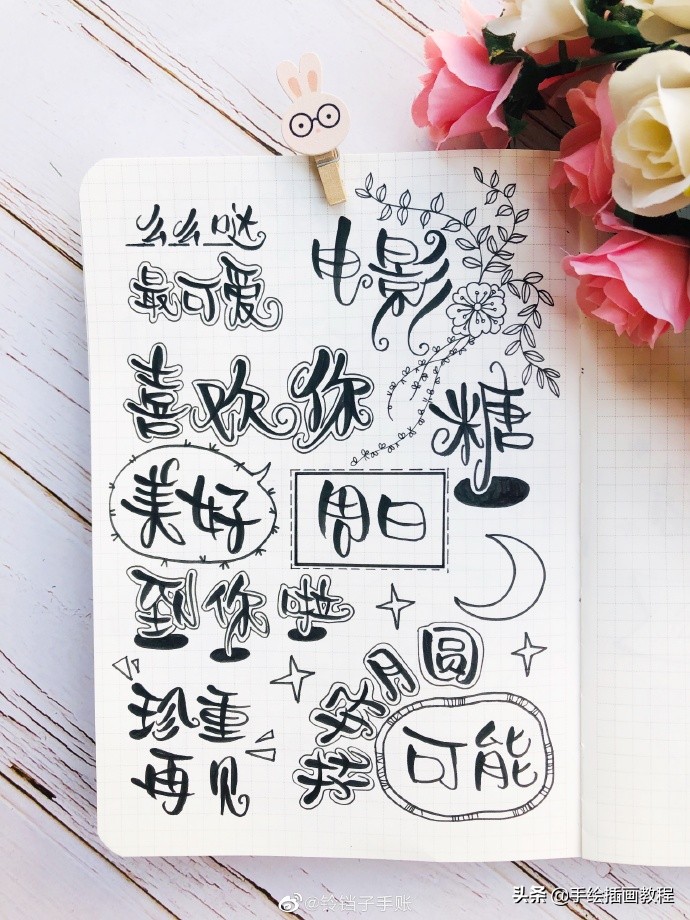 么么哒
电影
最可爱
喜欢你
糖
美好
周日
到你啦
花好月圆
珍重
再见
可能
@铃铛子手账
头条 @手绘插画教程